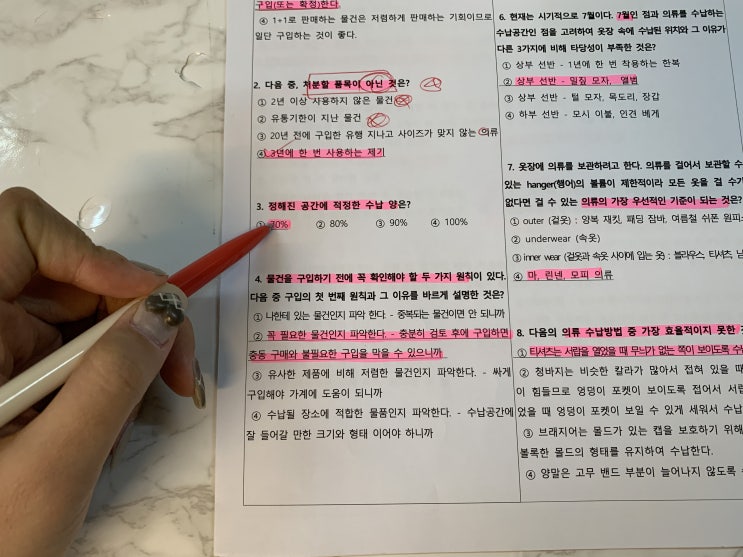 구입(또는 확정)한다.
④ 1+1로 판매하는 물건은 저렴하게 판매하는 기회이므로
일단 구입하는 것이 좋다.
2. 다음 중, 처분할 품목이 아닌 것은?
① 2년 이상 사용하지 않은 물건
② 유통기한이 지난 물건
③ 20년 전에 구입한 유행 지나고 사이즈가 맞지 않는 의류
④ 3년에 한 번 사용하는 제기
3. 정해진 공간에 적정한 수납 양은?
① 70% ② 80% ③ 90% ④ 100%
4. 물건을 구입하기 전에 꼭 확인해야 할 두 가지 원칙이 있다.
다음 중 구입의 첫 번째 원칙과 그 이유를 바르게 설명한 것은?
① 나한테 있는 물건인지 파악 한다. - 중복되는 물건이면 안 되니까
② 꼭 필요한 물건인지 파악한다. - 충분히 검토 후에 구입하면
충동 구매와 불필요한 구입을 막을 수 있으니까
③ 유사한 제품에 비해 저렴한 물건인지 파악한다. - 싸게
구입해야 가계에 도움이 되니까
④ 수납될 장소에 적합한 물품인지 파악한다. - 수납공간에
잘 들어갈 만한 크기와 형태 이어야 하니까
6. 현재는 시기적으로 7월이다. 7월인 점과 의류를 수납하는
수납공간인 점을 고려하여 옷장 속에 수납된 위치와 그 이유가
다른 3가지에 비해 타당성이 부족한 것은?
① 상부 선반 - 1년에 한 번 착용하는 한복
② 상부 선반 - 밀짚 모자, 앨범
③ 상부 선반 - 털 모자, 목도리, 장갑
④ 하부 선반 - 모시 이불, 인견 베게
7. 옷장에 의류를 보관하려고 한다. 의류를 걸어서 보관할 수
있는 hanger(행어)의 볼륨이 제한적이라 모든 옷을 걸 수가
없다면 걸 수 있는 의류의 가장 우선적인 기준이 되는 것은?
① outer (겉옷) : 양복 재킷, 패딩 잠바, 여름철 쉬폰 원피스
② underwear (속옷)
③ inner wear (겉옷과 속옷 사이에 입는 옷) : 블라우스, 티셔츠,
④ 마, 린넨, 모피 의류
8. 다음의 의류 수납방법 중 가장 효율적이지 못한
① 티셔츠는 서랍을 열었을 때 무늬가 없는 쪽이 보이도록
② 청바지는 비슷한 칼라가 많아서 접혀 있을 때
이 힘들므로 엉덩이 포켓이 보이도록 접어서
었을 때 엉덩이 포켓이 보일 수 있게 세워서
③ 브래지어는 몰드가 있는 캡을 보호하기 위해
볼록한 몰드의 형태를 유지하여 수납한다.
④ 양말은 고무 밴드 부분이 늘어나지 않도록